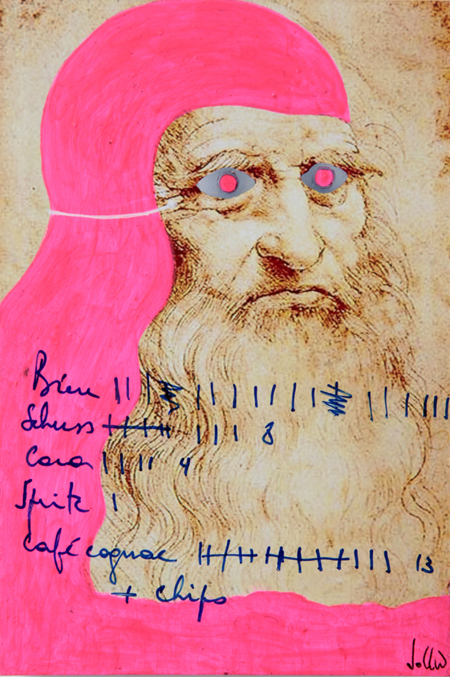 Bière
Schuss 8
Cava 4
Spritz 1
Café cognac 13
+ chips